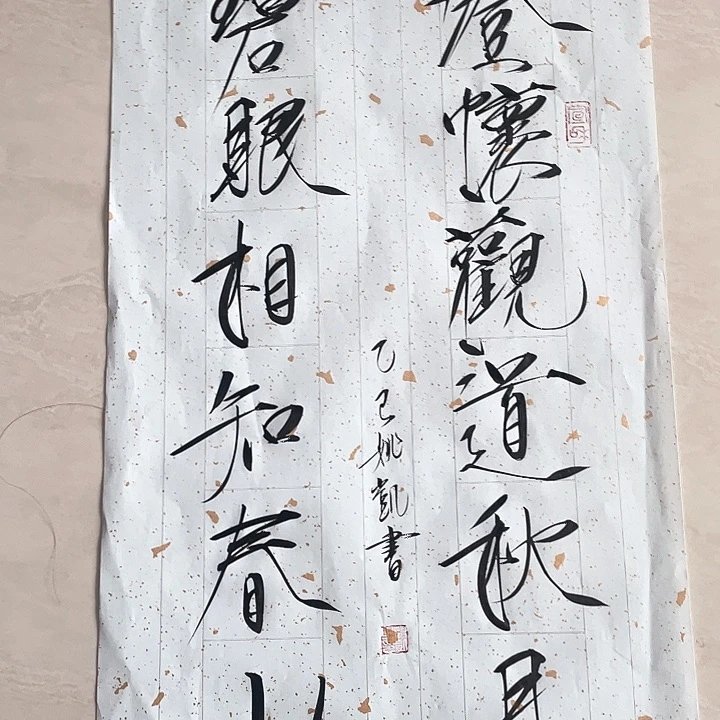 澄懷觀道秋月
眼相知春山
乙巳姚凱書